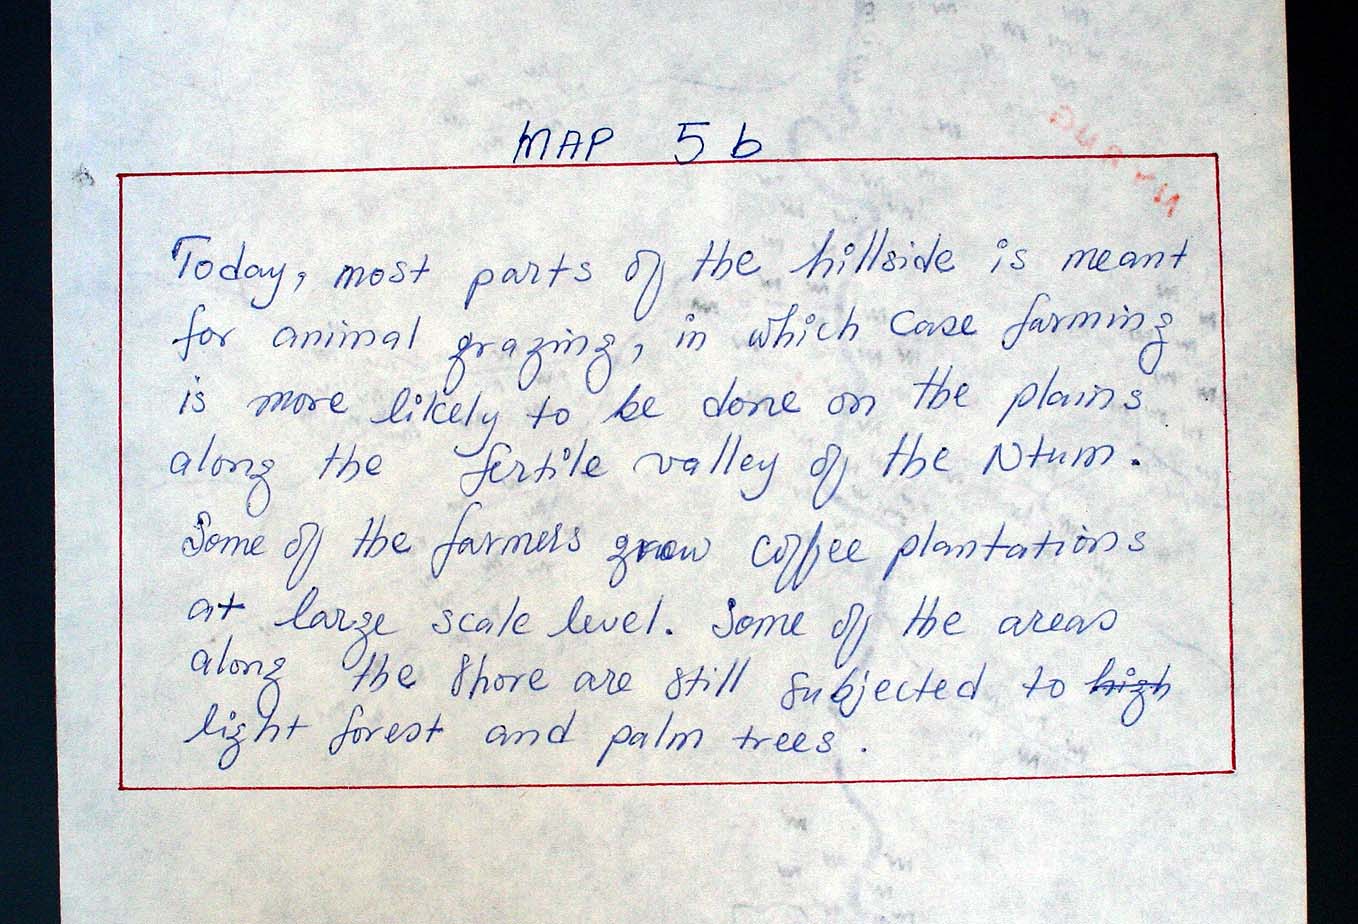 MAP 5b
Today, most parts of the hillside is meant
for animal grazing, in which case farming
is more likely to be done on the plains
along the fertile valley of the Ntum.
Some of the farmers grow coffee plantations
at large scale level. Some of the areas
along the shore are still subjected to high
light forest and palm trees.